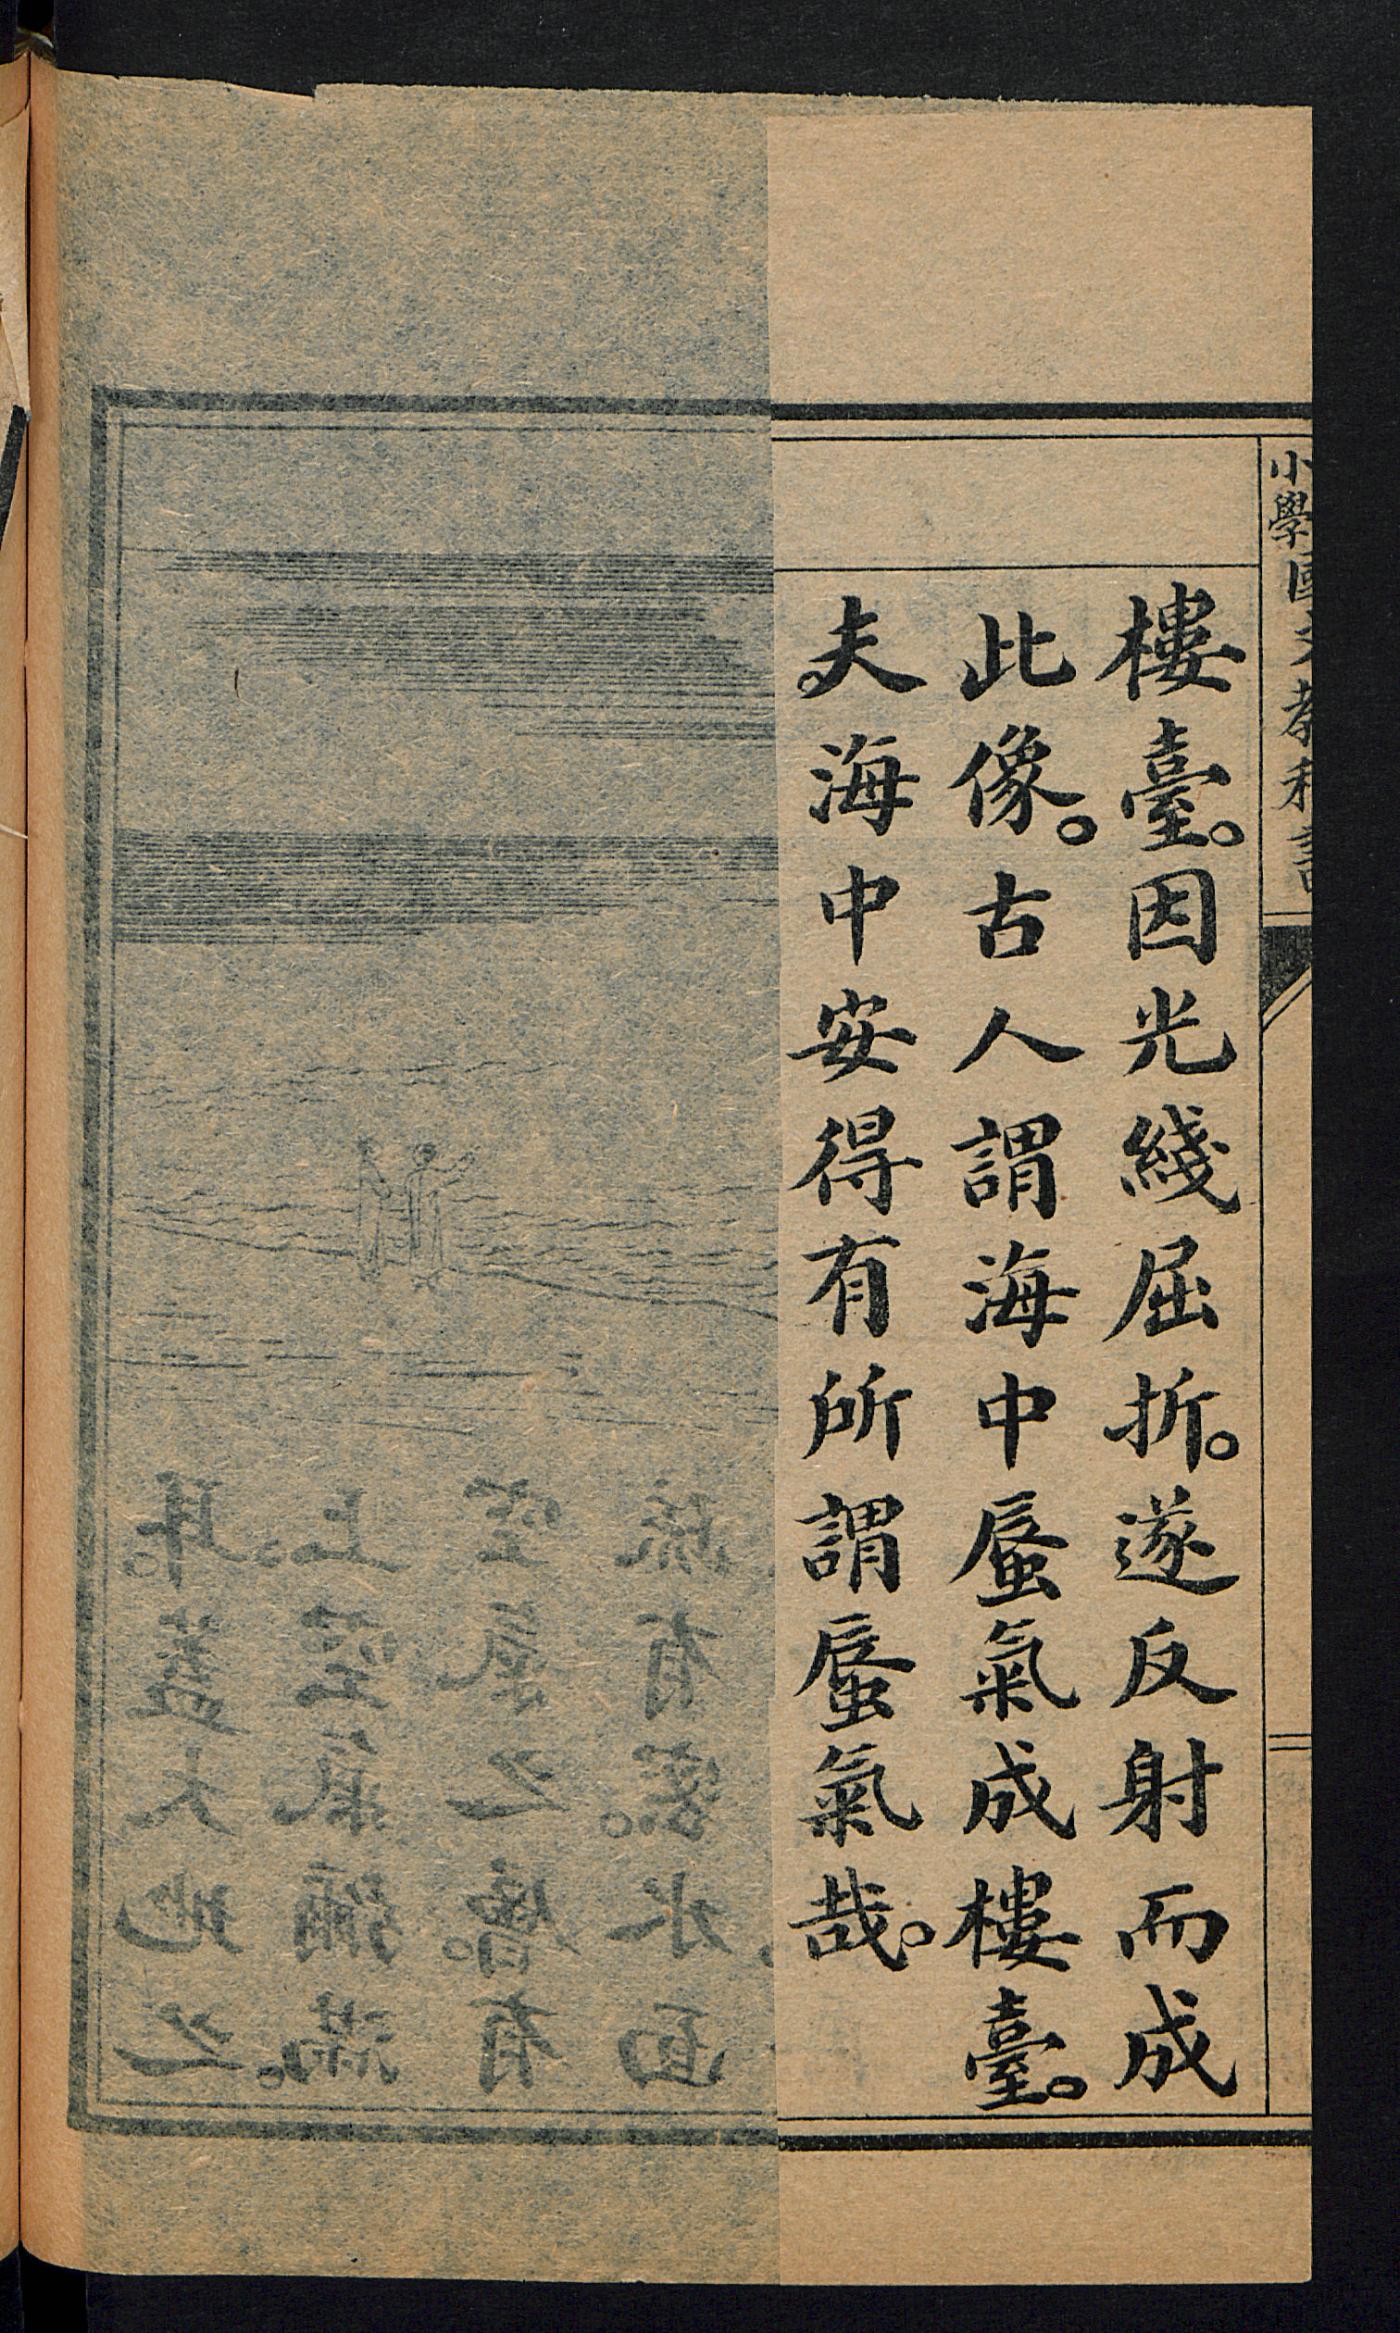 小學國文教科書
樓臺。因光綫屈折。遂反射而成
此像。古人謂海中蜃氣成樓臺。
夫海中安得有所謂蜃氣哉。
耳。蓋大地之
上、空氣彌滿。
空氣之層。有
疏有密。水面